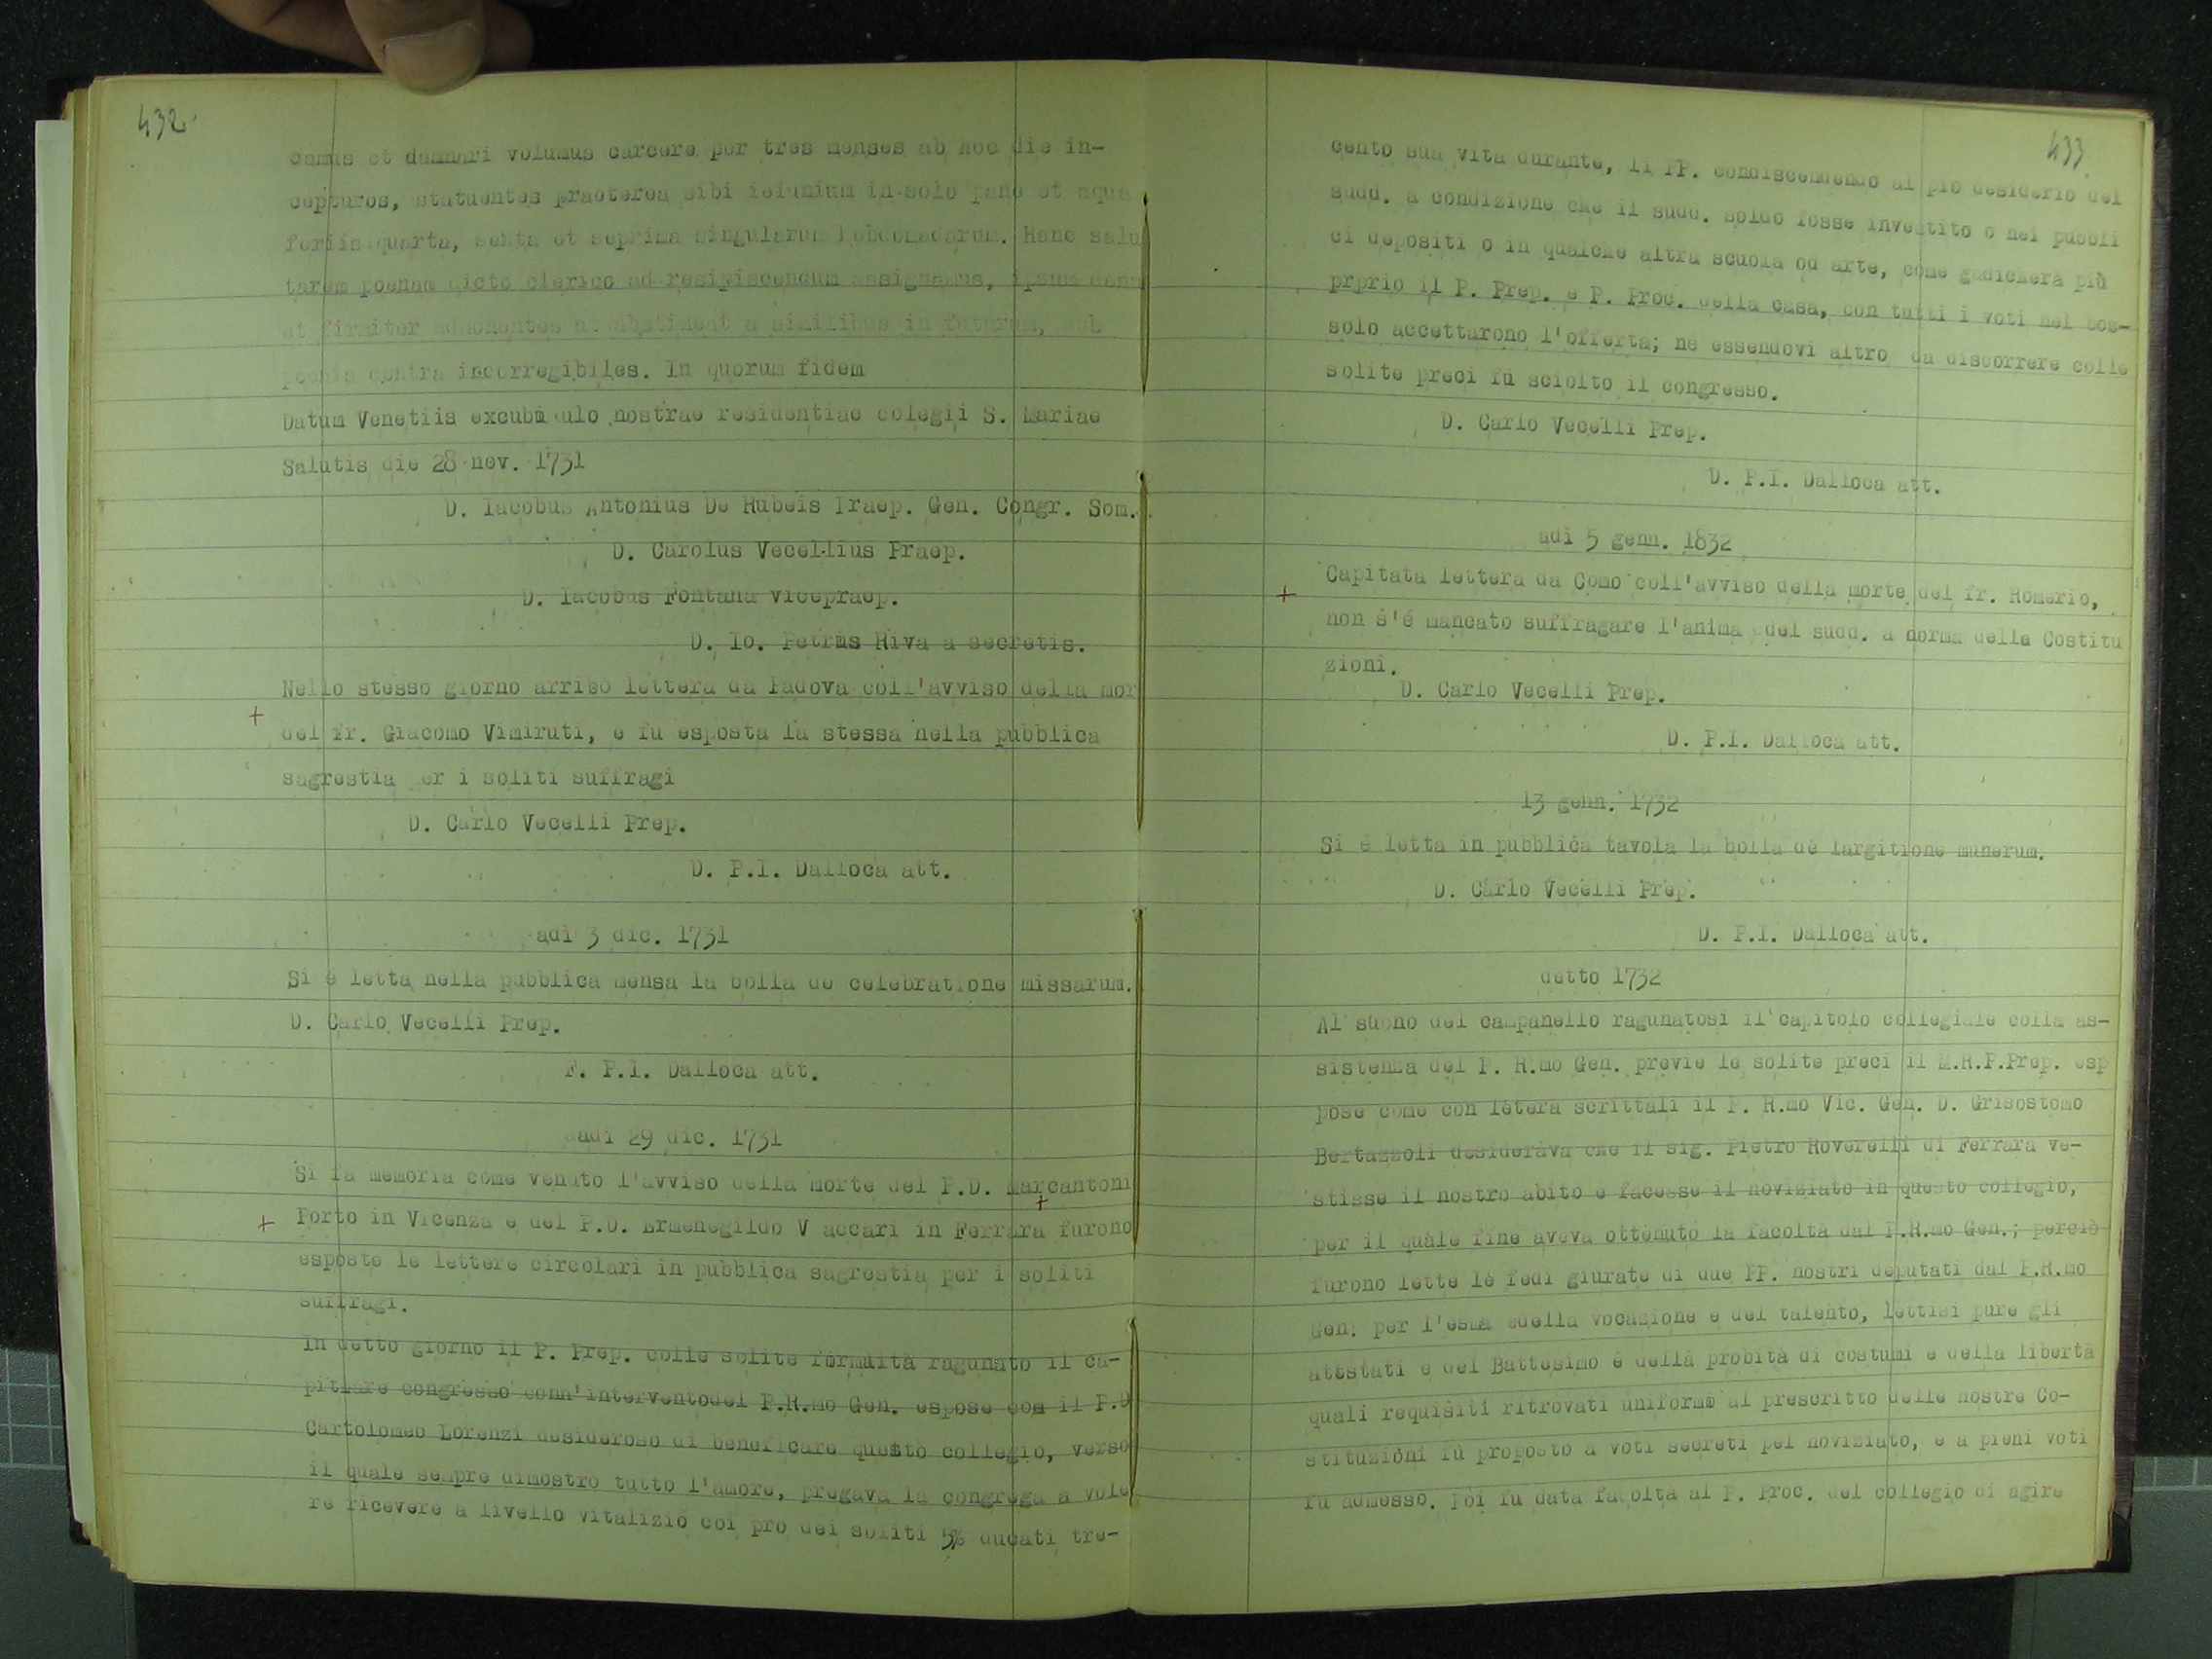 432.
camus et damnari volumus carcere per tres menses ab hoc die in-
cepturos, statuentes praeterea sibi ieiunium in solo pane et aqua
feriis quarta, sexta et seprima singularum hebdomadarum. Hanc salu
tarem poenam dicto clerico ad resipiscendum assignamus, ipsum
et firmiter admonentes abstineat a similibus in futurum, sub
poenis contra incorregibiles. In quorum fidem
Datum Venetiis excubiculo nostrae residentiae colegii S. Mariae
Salutis die 28 nov. 1731
D. Iacobus Antonius De Rubeis Praep. Gen. Congr. Som.
D. Carolus Vecellius Praep.
D. Iacobus Fontana vicepraep.
D. Io. Petrus Riva a secretis.
Nello stesso giorno arrivo lettera da Padova coll'avviso della mor
+ del fr. Giacomo Vimiruti, e fu esposta la stessa nella pubblica
sagrestia per i soliti suffragi
D. Carlo Vecelli Prep.
D. P.I. Dalloca att.
adi 3 dic. 1731
Si è letta nella pubblica mensa la bolla de celebratione missarum.
D. Carlo Vecelli Prep.
F. P.I. Dalloca att.
adi 29 dic. 1731
Si fa memoria come venuto l'avviso della morte del P.D. Marcantoni
+ Porto in Vicenza e del P.D. Ermenegildo V accari in Ferrara + furono
esposto le lettere circolari in pubblica sagrestia per i soliti
suffragi.
In detto giorno il P. Prep. colle solite formaltà ragunato il ca-
pitlare congresso conn'interventodel P.R.mo Gen. espose com il P.D
Cartolomeo Lorenzi desideroso di beneficare questo collegio, verso
il quale sempre dimostro tutto l'amore, pregava la congrega a vole
re ricevere a livello vitalizio coi pro dei soliti 5% ducati tre-
433
cento sua vita durante, li PP. condiscendendo al pio desiderio del
sudd. a condizione che il sudd. soldo fosse inventito o nei pubbli
ci depositi o in qualche altra scuola od arte, come gudicherà più
prprio il P. Prep. e P. Proc. della casa, con tutti i voti nel bos-
solo accettarono l'offerta; né essendovi altro da discorrere colle
solite preci fù sciolto il congresso.
D. Carlo Vecelli Prep.
D. P.I. Dalloca att.
adi 5 genn. 1832
+ Capitata lettera da Como coll'avviso della morte del fr. Romerio,
non s'é mancato suffragare l'anima del sudd. a norma delle Costitu
zioni.
D. Carlo Vecelli Prep.
D. P.I. Dalloca att.
13 genn. 1732
Si é letta in pubblica tavola la bolla de largitione munerum.
D. Carlo Vecelli Prep.
D. P.I. Dalloca att.
detto 1732
Al suono del campanello ragunatosi il capitolo collegiale colla as-
sistenza del P. R.mo Gen. previe le solite preci il M.R.P.Prep. esp
pose come con letera scrittali il P. R.mo Vic. Gen. D. Grisostomo
Bertazzoli desiderava che il sig. Pietro Roverelli di Ferrara ve-
stisse il nostro abito e facesse il noviziato in questo collegio,
per il quale fine aveva ottenuto la facoltà dal P.R.mo Gen.; perciò
furono lette le fedi giurate di due PP. nostri deputati dal P.R.mo
Gen. per l'esma edella vocazione e del talento, lettisi pure gli
attstati e del Battesimo e della probità di costumi e della libertà
quali requisiti ritrovati uniformi al prescritto delle nostre Co-
stituzioni fù proposto a voti secreti pel noviziato, e a pieni voti
fu admosso. Poi fu data facolta al P. Proc. del collegio di agire